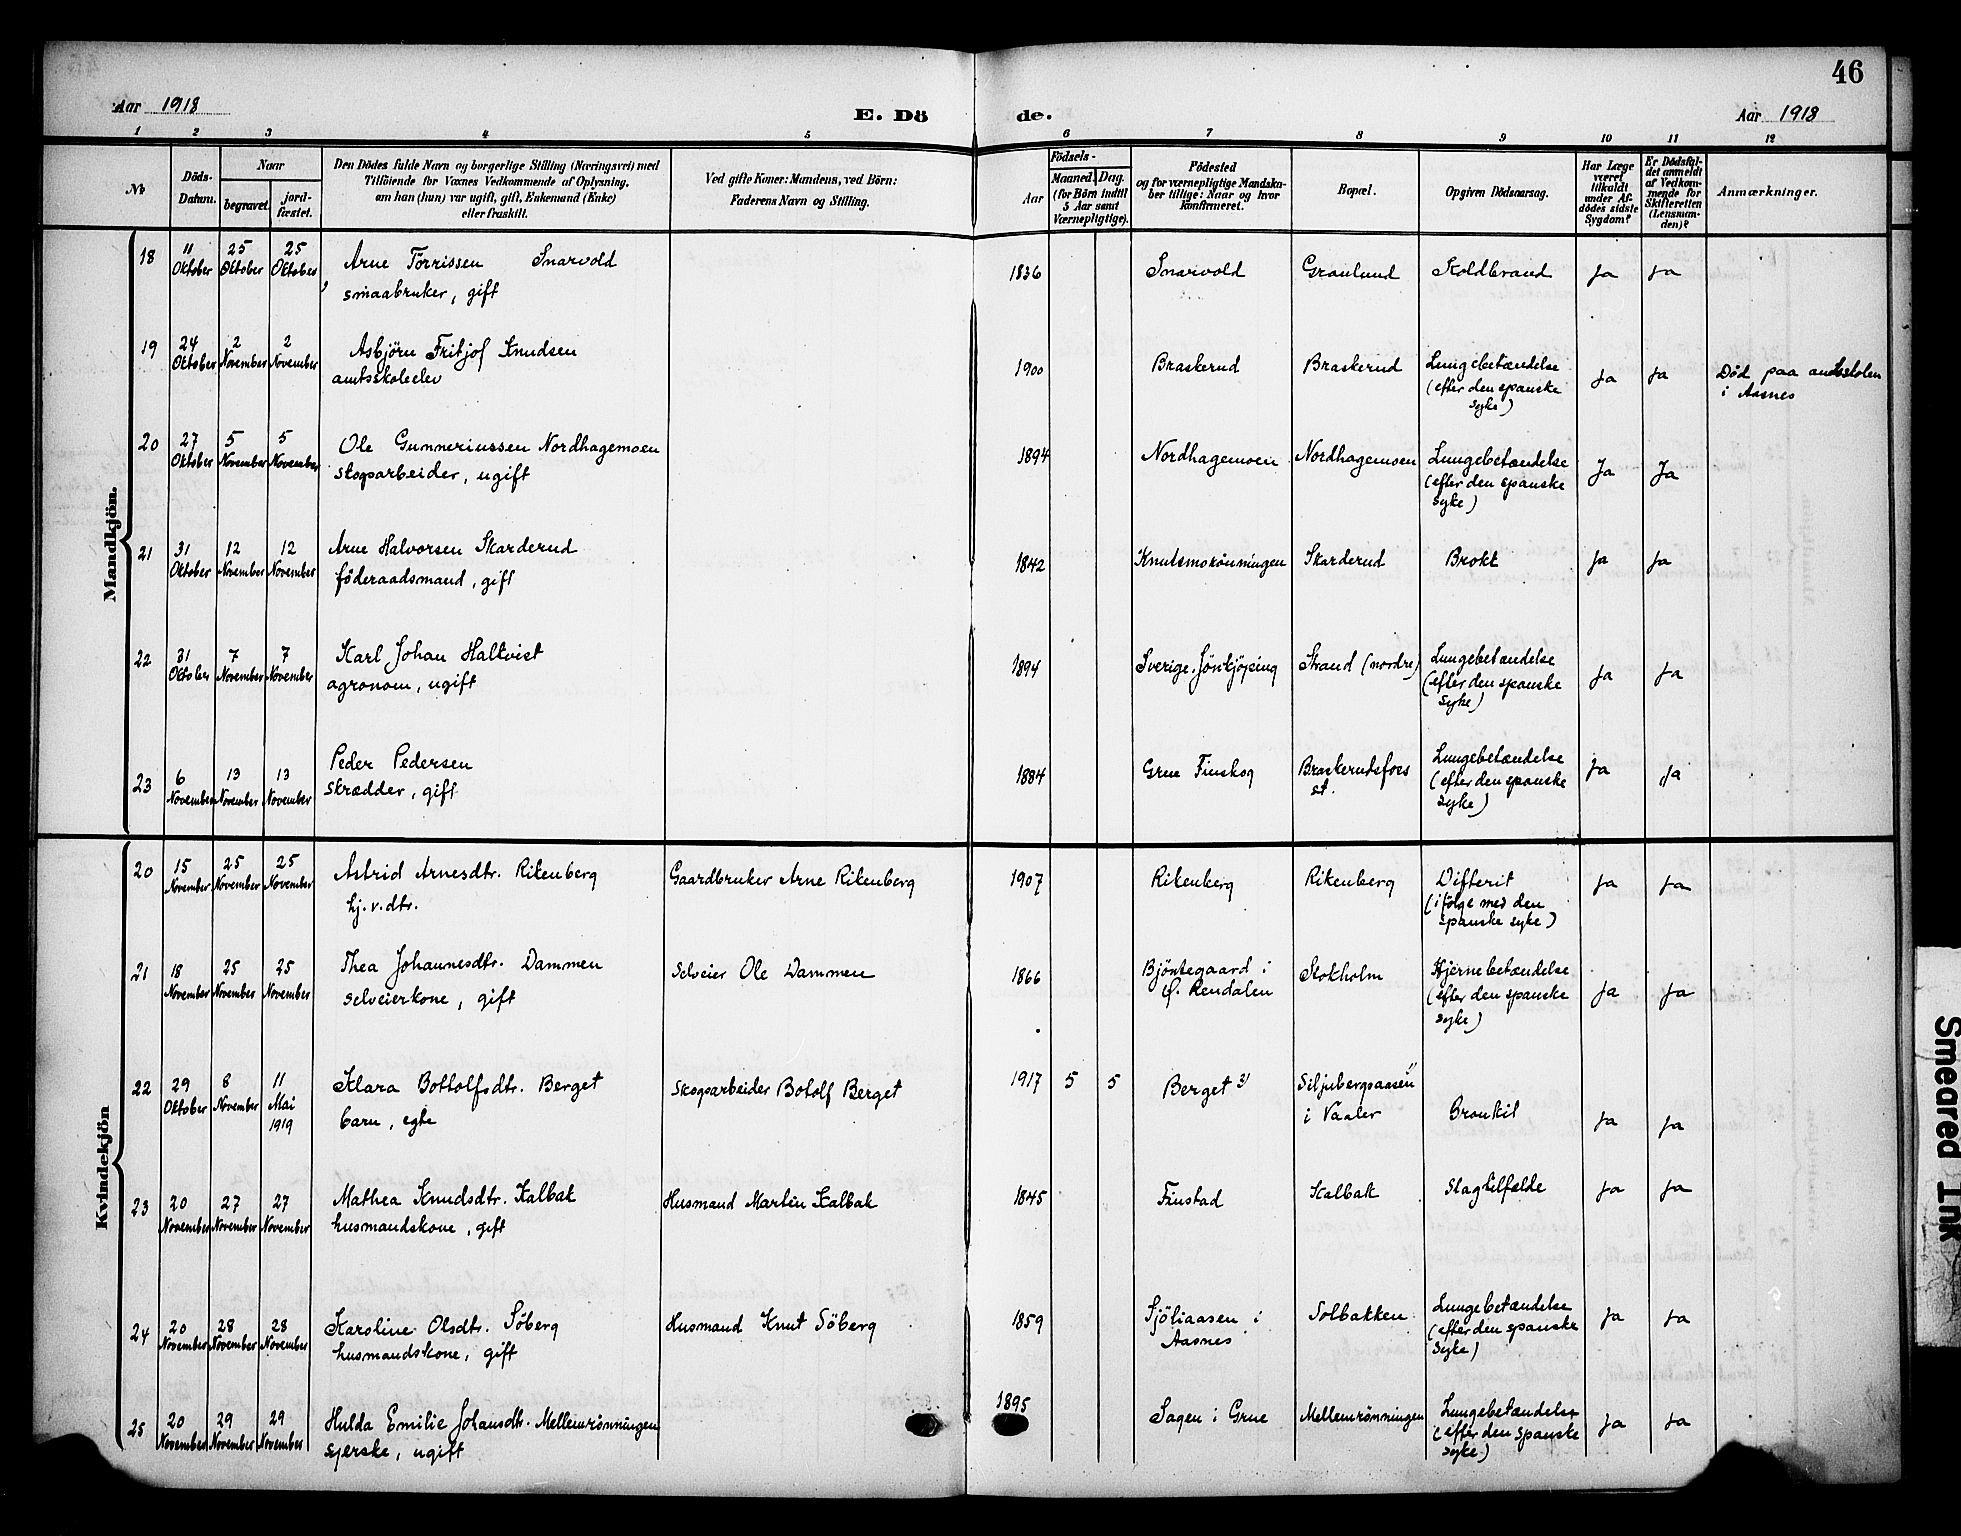 46
Aar 1918
E. Döde.
Aar 1918
1 2 3 4 5 6 7 8 9 10 11 12
No
Döds-Datum.
Naar
begravet.
jord-fæstet.
Den Dödes fulde Navn og borgerlige Stilling (Næringsvei) med
Tilföiende for Voxnes Vedkommende af Oplysning,
om han (hun) var ugift, gift, Enkemand (Enke)
eller fraskilt.
Ved gifte Koner: Mandens, ved Börn:
Faderens Navn og Stilling.
Födsels-
Aar
Maaned. Dag.
(for Börn indtil
5 Aar samt
Værnepligtige).
Födested
og for værnepligtige Mandska-
ber tillige: Naar og hvor
konfirmeret.
Bopæl.
Opgiven Dödsaarsag.
Har Læge
været
tilkaldt
under Af-
dödes sidste
Sygdom?
Er Dödsfal-
det anmeldt
af Vedkom-
mende for
Skifteretten
(Lensman-
den)?
Anmærkninger.
Mandkjön.
18 11 Oktober 25 Oktober 25 Oktober Arne Törrissen Snarvold 1836 Snarvold Grønlund Koldbrand Ja Ja
smaabruker, gift
19 24 Oktober 2 November 2 November Asbjörn Fritjof Knudsen 1900 Braskerud Braskerud Lungebetændelse Ja Ja Död paa amtsskolen
amtsskoleelev (efter den spanske i Aasnes
syke)
20 27 Oktober 5 November 5 November Ole Gunneriussen Nordhagemoen 1894 Nordhagemoen Nordhagemoen Lungebetændelse Ja Ja
skogsarbeider, ugift (efter den spanske
syke)
21 31 Oktober 12 November 12 November Arne Halvorsen Skarderud 1842 Knutsmorönningen Skarderud Brokk Ja Ja
föderaadsmand, gift
22 31 Oktober 7 November 7 November Karl Johan Haltvist 1894 Sverige. Jönkjöping Strand (nordre) Lungebetændelse Ja Ja
agronom, ugift (efter den spanske
syke)
23 6 November 13 November 13 November Peder Pedersen 1884 Grue Finskog Braskerudsfoss Lungebetændelse Ja Ja
skrædder, gift st. (efter den spanske
syke)
Kvindekjön
20 15 November 25 November 25 November Astrid Arnesdtr. Rikenberg Gaardbruker Arne Rikenberg 1907 Rikenberg Rikenberg Difterit Ja Ja
hj.v.dtr. (ifölge med den
spanske syke)
21 18 November 25 November 25 November Thea Johannesdtr. Dammen Selveier Ole Dammen 1866 Bjöntegaard i Stokholm Hjernebetændelse Ja Ja
selveierkone, gift Ö. Rendalen (efter den spanske
syke)
22 29 Oktober 8 November 11 Mai 1919 Klara Bottolfsdtr. Berget Skogsarbeider Botolf Berget 1917 5 5 Berget Siljubergsaasen Bronkit Ja Ja
barn, egte i Vaaler
23 20 November 27 November 27 November Mathea Knudsdtr. Kalbak Husmand Martin Kalbak 1845 Finstad Kalbak Slagtilfælde Ja Ja
husmandskone, gift
24 20 November 28 November 28 November Karoline Olsdtr. Söberg Husmand Knut Söberg 1859 Sjöliaasen i Solbakken Lungebetændelse Ja Ja
husmandskone, gift Aasnes (efter den spanske
syke)
25 20 November 29 November 29 November Hulda Emilie Johansdtr. Mellemrönningen 1895 Sagen i Grue Mellemrönningen Lungebetændelse Ja Ja
syerske, ugift (efter den spanske
syke)
Smeared Ink